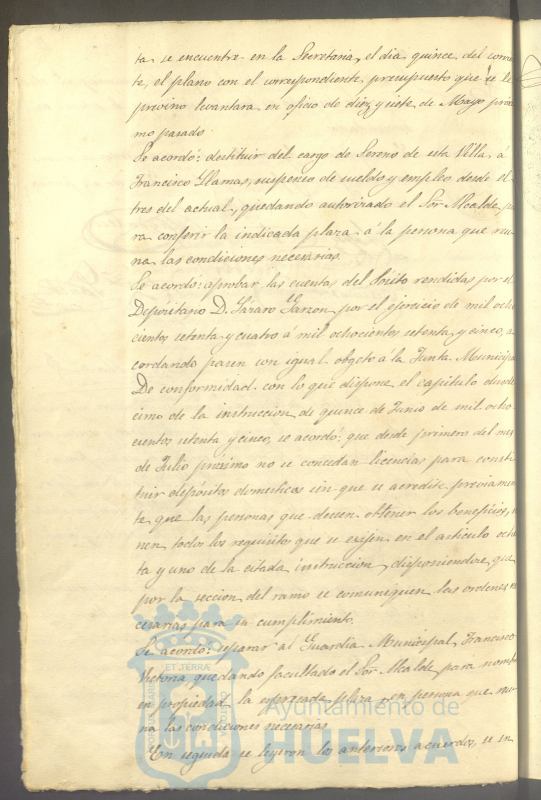 ta se encuentre en la Secretaria, el dia quince del corrien
te, el plano con el correspondiente presupuesto que se le
previno levantara en oficio de diez y siete de Mayo próxi
mo pasado.
Se acordó: destituir del cargo de Sereno de esta Villa, á
Francisco Llamas, suspenso de sueldo y empleo desde el
tres del actual, quedando autorizado el Sor. Alcalde, pa
ra conferir la indicada plaza á la persona que reu
na las condiciones necesarias.
Se acordó: aprobar las cuentas del Pósito rendidas por el
Depositario D. Lázaro Garzon por el ejercicio de mil ocho
cientos setenta y cuatro á mil ochocientos setenta y cinco, a
cordando pasen con igual objeto á la Junta Municipal
De conformidad con lo que dispone el capítulo duodé
cimo de la instruccion de quince de Junio de mil ocho
cientos setenta y cinco, se acordó: que desde primero del mes
de Julio próximo no se concedan licencias para consti
tuir depósitos domesticos sin que se acredite previamen
te que las personas que deseen obtener los beneficios, reu
nen todos los requisitos que se exijen en el articulo ochen
ta y uno de la citada instruccion, disponiendose, que
por la seccion del ramo se comuniquen las ordenes ne
cesarias para su cumplimiento.
Se acordó: separar al Guardia Municipal, Francisco
Victoria quedando facultado el Sor. Alcalde para nombrar
en propiedad la espresada plaza, en persona que reu
na las condiciones necesarias
En seguida se leyeron los anteriores acuerdos, se en
Ayuntamiento de
HUELVA